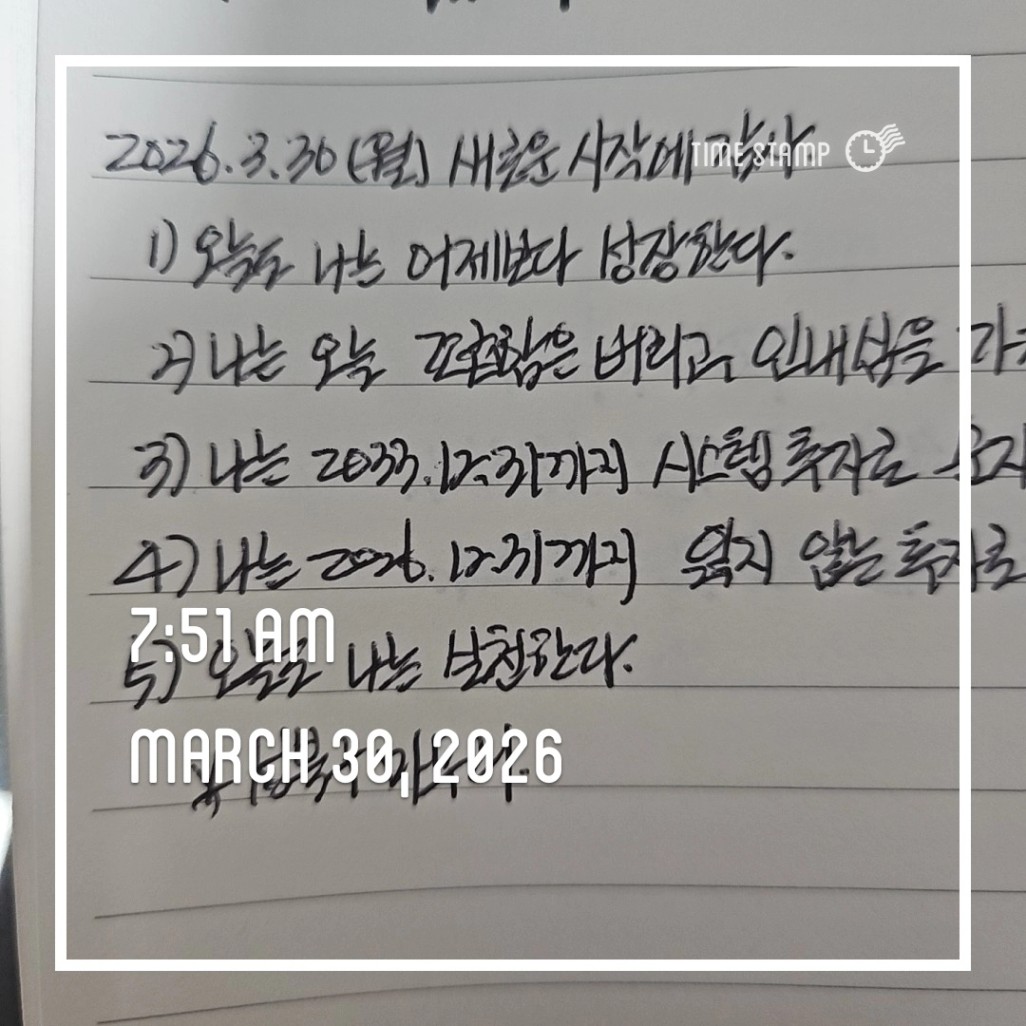 2026.3.30(월) 새로운 시작에 감사
TIME STAMP
1) 오늘도 나는 어제보다 성장한다.
2) 나는 오늘 조급함은 버리고, 인내심을
3) 나는 2033.12.31까지 시스템 투자로
4) 나는 2026.12.31까지 잃지 않는 투자로
7:51 AM
5) 오늘도 나는 실천한다.
MARCH 30, 2026